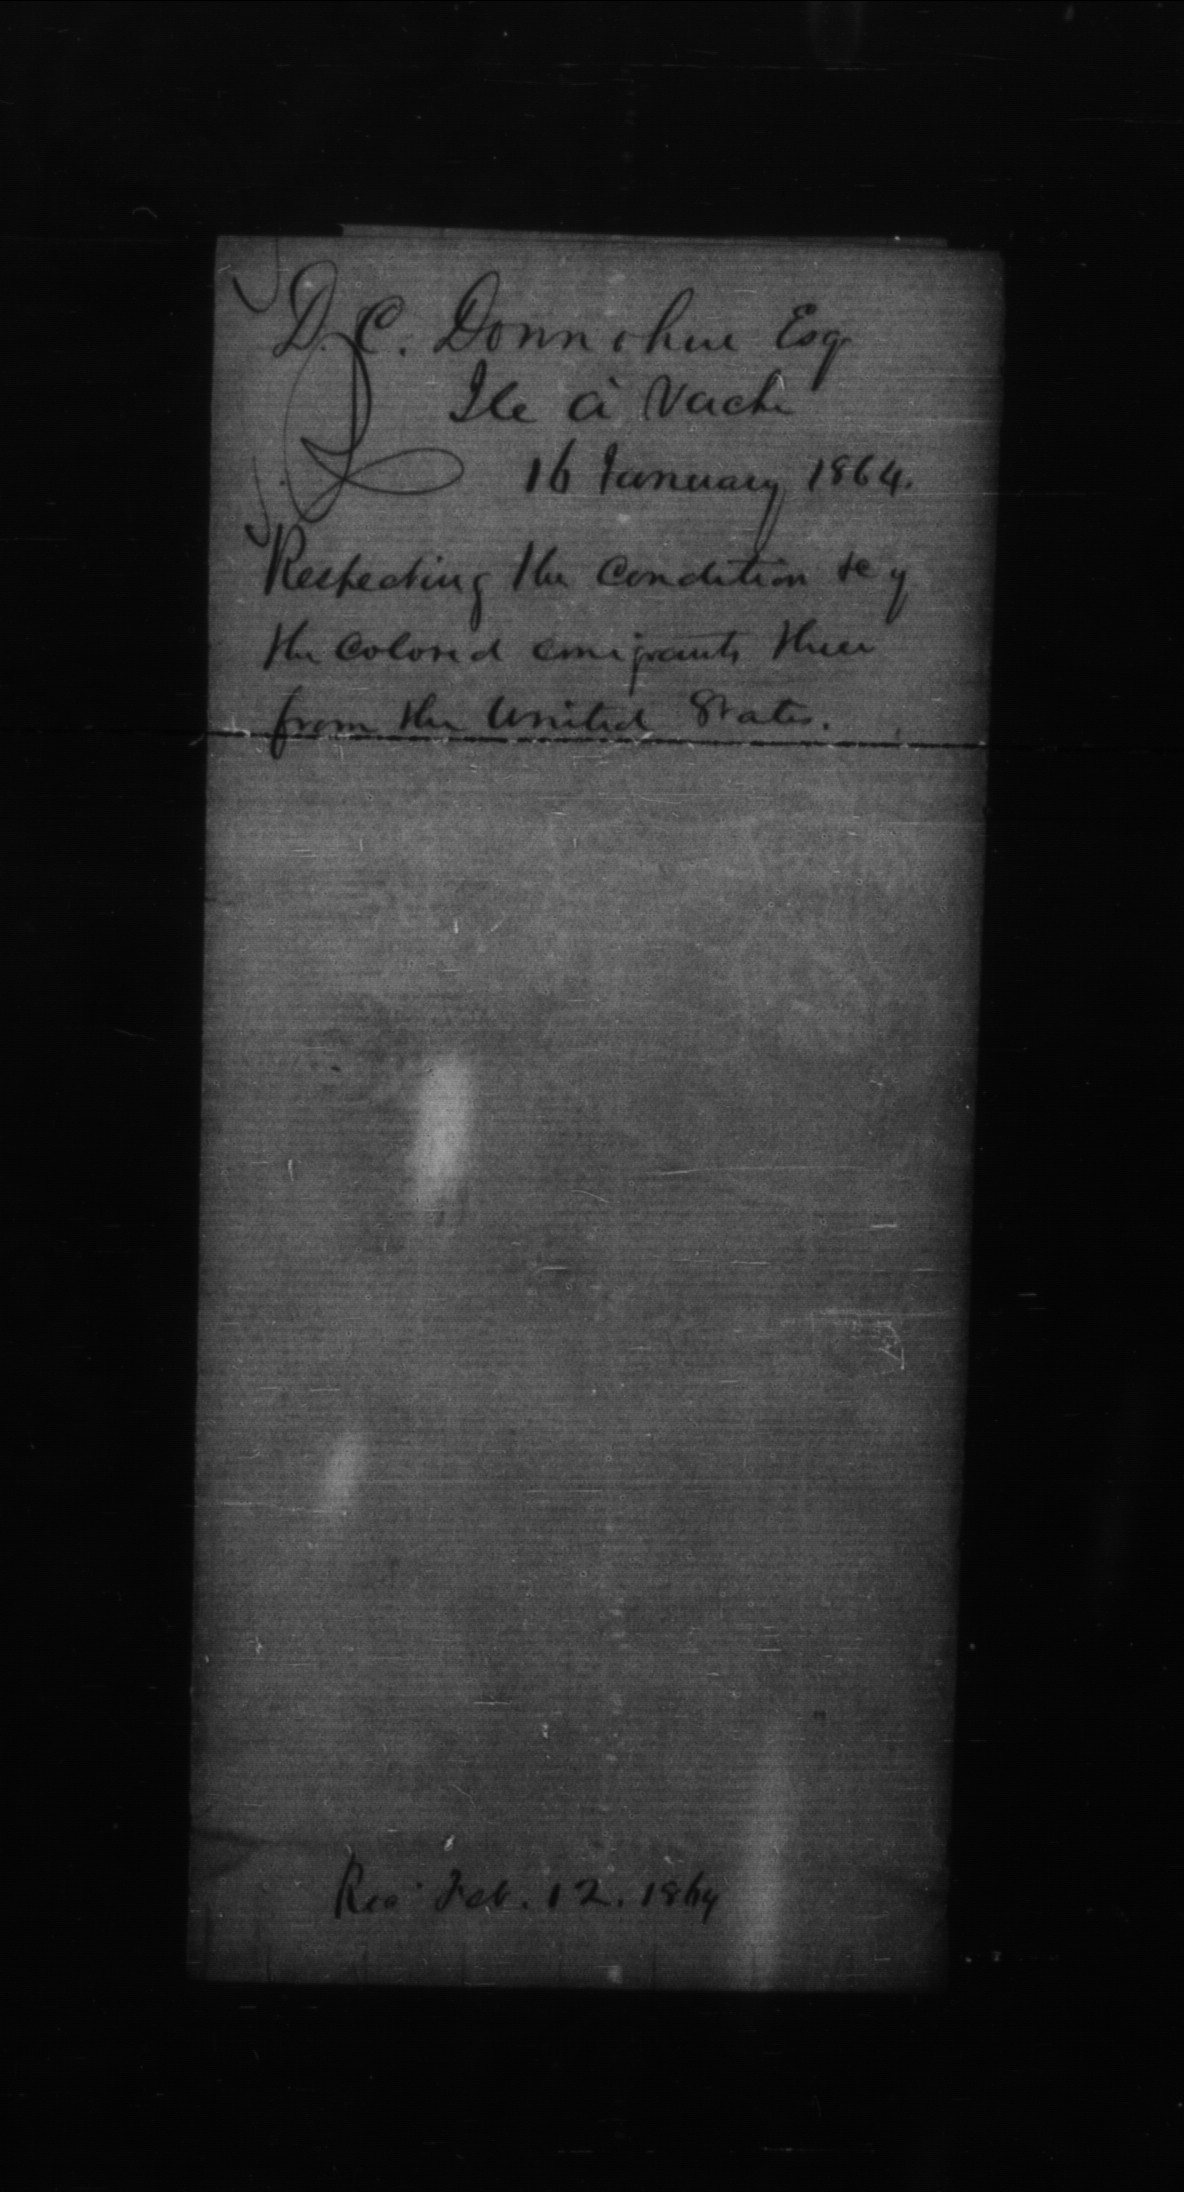 D. C. Donnohue Esq
Ile à Vache
16 January 1864.
Respecting the condition &c of
the colored emigrants there
from the United States.
Rec Feb. 12. 1864